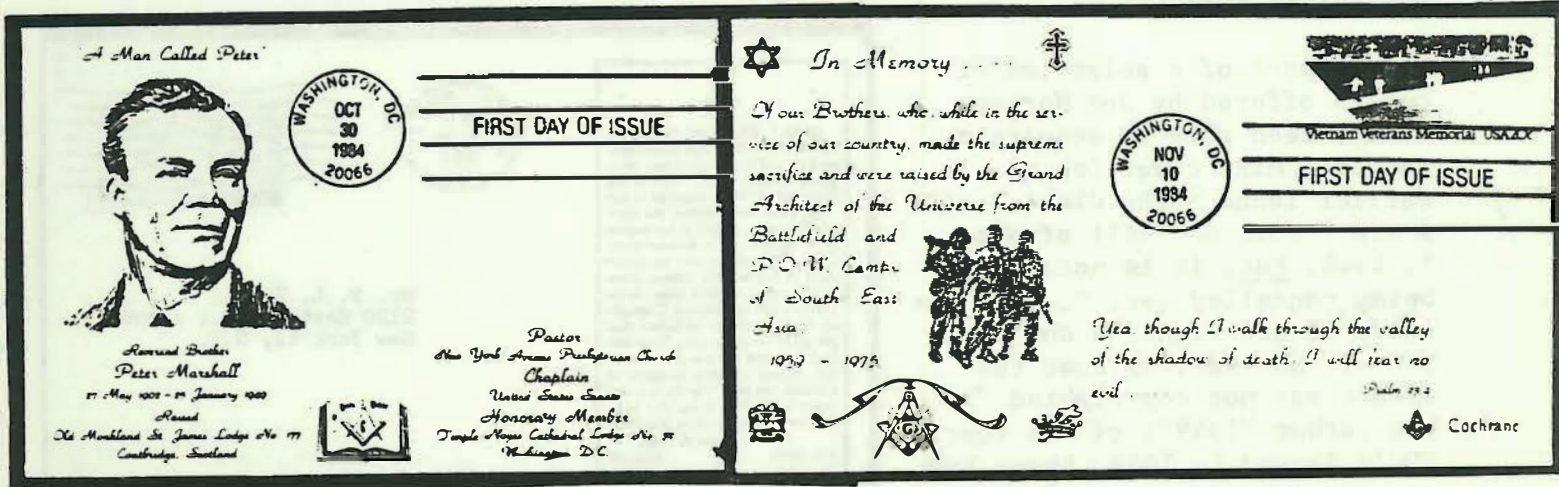 A Man Called Peter
WASHINGTON, DC
OCT
30
1984
20066
FIRST DAY OF ISSUE
Reverend Brother
Peter Marshall
27 May 1902 - 25 January 1949
Raised
Old Monkland St. James Lodge No 177
Coatbridge, Scotland
Pastor
New York Avenue Presbyterian Church
Chaplain
United States Senate
Honorary Member
Temple Noyes Cathedral Lodge No.
Washington D.C.
In Memory
Of our Brothers, who, while in the ser-
vice of our country, made the supreme
sacrifice and were raised by the Grand
Architect of the Universe from the
Battlefield and
P.O.W. Camps
of South East
Asia.
1959 - 1975
WASHINGTON, DC
NOV
10
1984
20066
Vietnam Veterans Memorial USA 20c
FIRST DAY OF ISSUE
Yea, though I walk through the valley
of the shadow of death, I will fear no
evil
Psalm 23:4
G
Cochrane